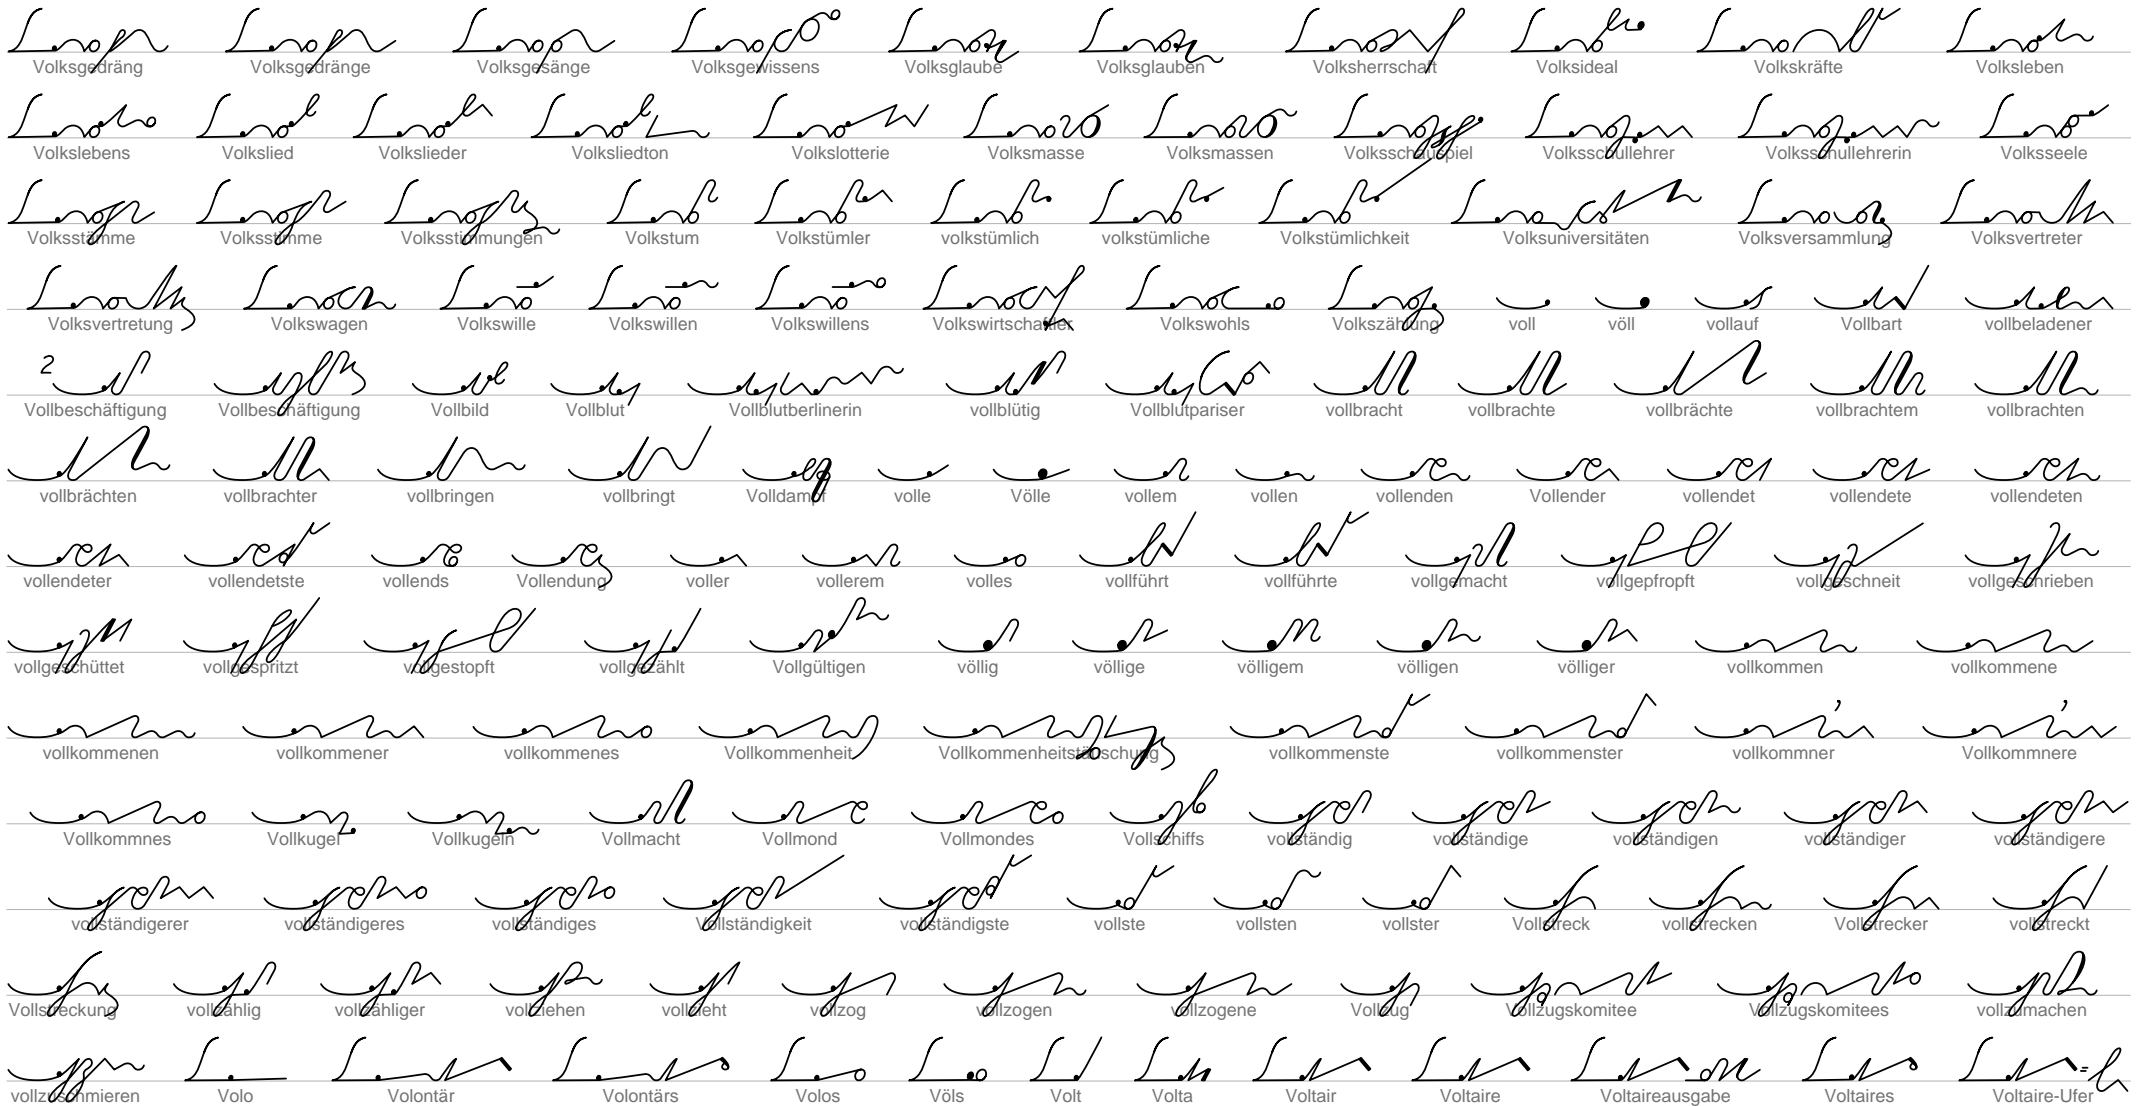 Volksgedräng Volksgedränge Volksgesänge Volksgewissens Volksglaube Volksglauben Volksherrschaft Volksideal Volkskräfte Volksleben
Volkslebens Volkslied Volkslieder Volksliedton Volkslotterie Volksmasse Volksmassen Volksschauspiel Volksschullehrer Volksschullehrerin Volksseele
Volksstämme Volksstimme Volksstimmungen Volkstum Volkstümler volkstümlich volkstümliche Volkstümlichkeit Volksuniversitäten Volksversammlung Volksvertreter
Volksvertretung Volkswagen Volkswille Volkswillen Volkswillens Volkswirtschaftler Volkswohls Volkszählung voll völl vollauf Vollbart vollbeladener
2 Vollbeschäftigung Vollbeschäftigung Vollbild Vollblut Vollblutberlinerin vollblütig Vollblutpariser vollbracht vollbrachte vollbrächte vollbrachtem vollbrachten
vollbrächten vollbrachter vollbringen vollbringt Volldampf volle Völle vollem vollen vollenden Vollender vollendet vollendete vollendeten
vollendeter vollendetste vollends Vollendung voller vollerem volles vollführt vollführte vollgemacht vollgepfropft vollgeschneit vollgeschrieben
vollgeschüttet vollgespritzt vollgestopft vollgezählt Vollgültigen völlig völlige völligem völligen völliger vollkommen vollkommene
vollkommenen vollkommener vollkommenes Vollkommenheit Vollkommenheitstäuschung vollkommenste vollkommenster vollkommner Vollkommnere
Vollkommnes Vollkugel Vollkugeln Vollmacht Vollmond Vollmondes Vollschiffs vollständig vollständige vollständigen vollständiger vollständigere
vollständigerer vollständigeres vollständiges Vollständigkeit vollständigste vollste vollsten vollster Vollstreck vollstrecken Vollstrecker vollstreckt
Vollstreckung vollzählig vollzähliger vollziehen vollzieht vollzog vollzogen vollzogene Vollzug Vollzugskomitee Vollzugskomitees vollzumachen
vollzuschmieren Volo Volontär Volontärs Volos Völs Volt Volta Voltair Voltaire Voltaireausgabe Voltaires Voltaire-Ufer